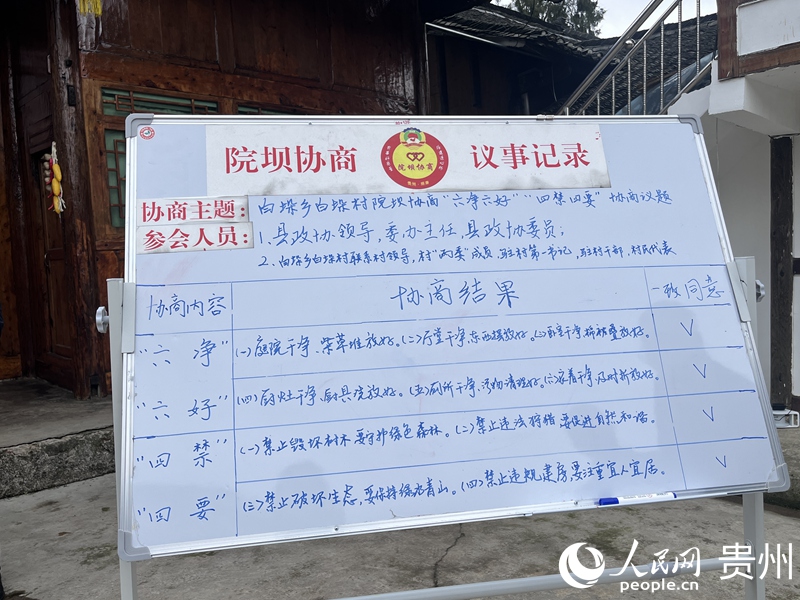 院坝协商 院坝协商 议事记录
协商主题: 白垛乡白垛村院坝协商“六净六好”“四禁四要”协商议题
参会人员: 1.县政协领导,委办主任,县政协委员;
2、白垛乡白垛村联系村领导,村“两委”成员,驻村第一书记,驻村干部,村民代表
协商内容 协商结果 一致同意
“六净” (一)庭院干净、柴草堆放好。(二)厅堂干净、东西摆放好。(三)卧室干净、棉被叠放好。 V
“六好” (四)厨灶干净、厨具洗放好。(五)厕所干净、污物清理好。(六)穿着干净、及时折放好。 V
“四禁” (一)禁止毁坏树木,要守护绿色森林。(二)禁止违法狩猎,要促进自然和谐。 V
“四要” (三)禁止破坏生态,要保持绿水青山。(四)禁止违规建房,要注重宜人宜居。 V
人民网 贵州
people.cn